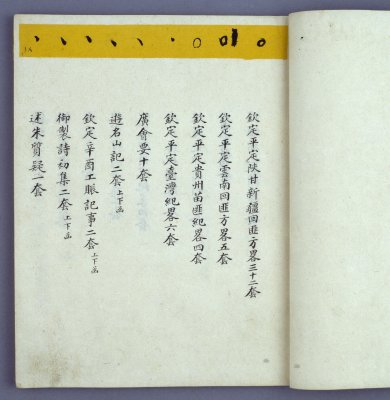 欽定平定陝甘新疆回匪方畧三十二套
欽定平定雲南回匪方畧五套
欽定平定貴州苗匪紀畧四套
欽定平定臺灣紀畧六套
廣會要十套
遊名山記二套上下函
欽定辛酉工賑記事二套上下函
御製詩初集二套上下函
述朱質疑一套